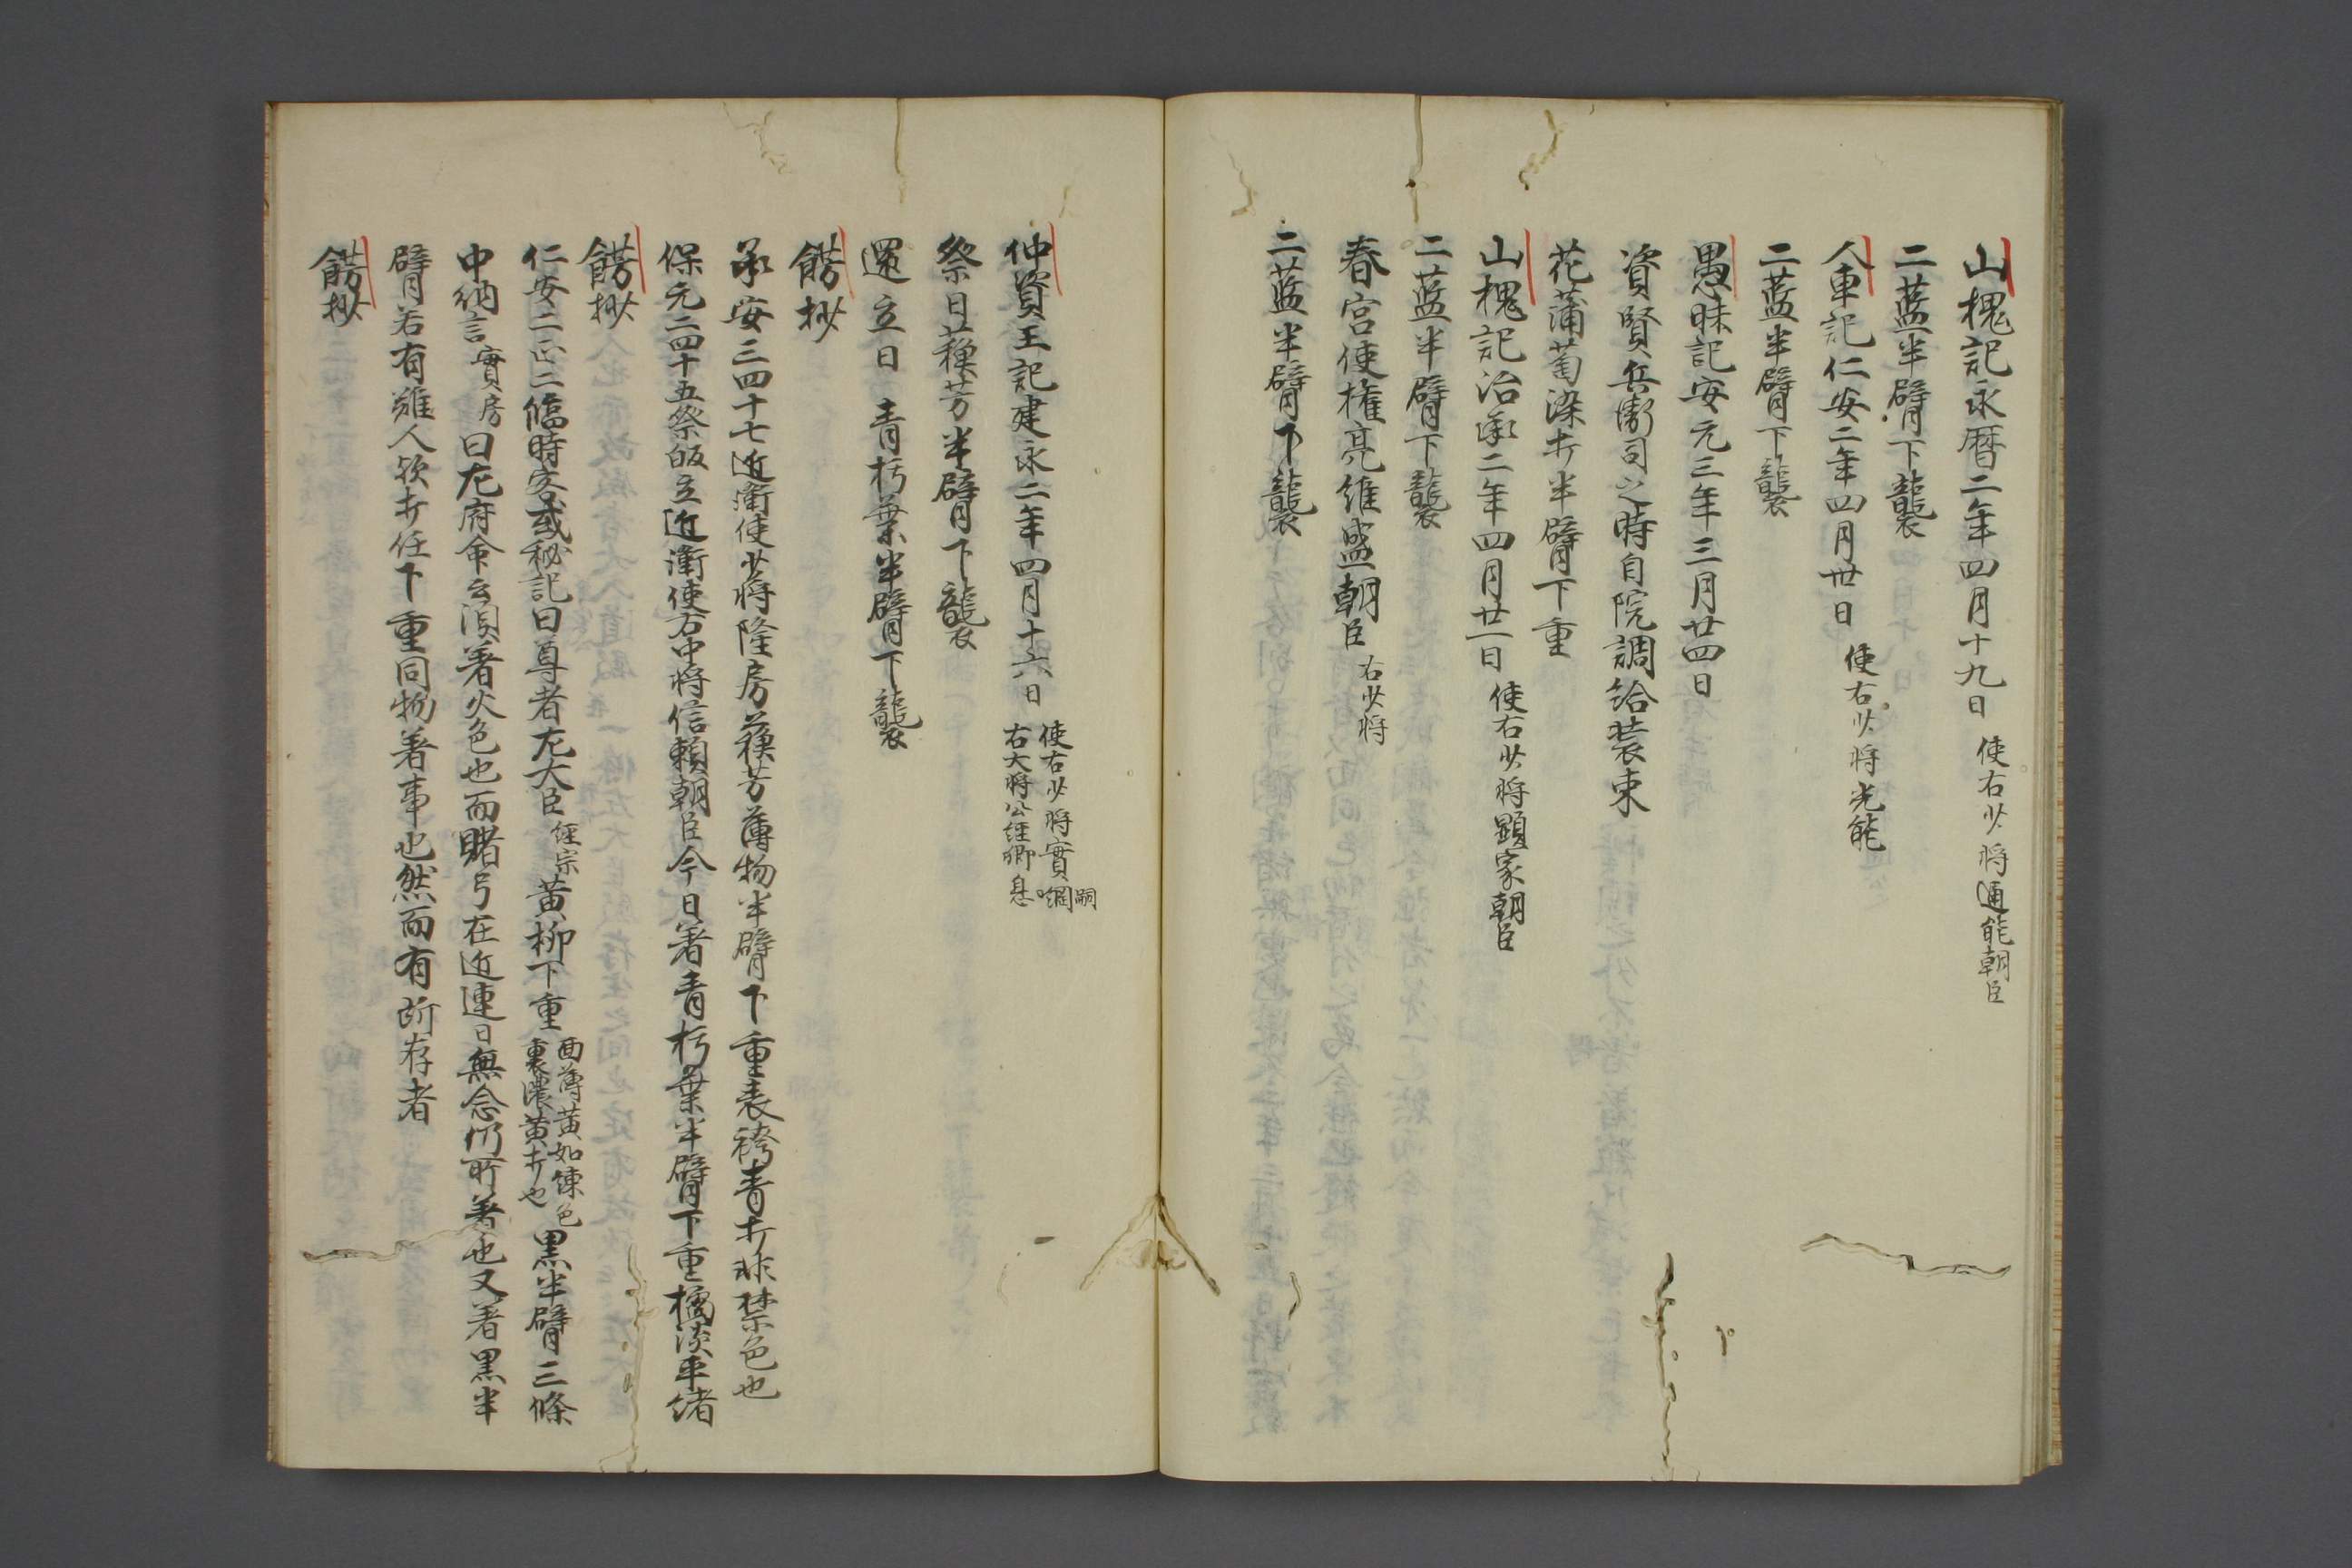 山槐記永暦二年四月十九日 使右少将通能朝臣
二藍半臂下襲
人車記仁安二年四月卅日 使右少将光能
二藍半臂下襲
愚昧記安元三年三月廿四日
資賢兵衛司之時自院調給装束
花蒲萄染打半臂下重
山槐記治承二年四月廿一日 使右少将顕家朝臣
二藍半臂下襲
春宮使権亮維盛朝臣 右少将
二藍半臂下襲
仲資王記建永二年四月十六日 使右少将實嗣
右大将公経卿息
祭日蘓芳半臂下襲
還立日 青朽葉半臂下襲
餝抄
承安三四十七近衛使少将隆房蘓芳薄物半臂下重表袴青打非禁色也
保元二四十五祭皈立近衛使右中将信頼朝臣今日著青朽葉半臂下重
餝抄
仁安二正二臨時客或秘記曰尊者左大臣 經宗 黄柳下重 面薄黄如練色
裏濃黄打也 黒半臂三條
中納言 實房 曰左府命云須著火色也而賭弓在近連日無念仍所著也又著黒半
臂若有雖人欤打任下重同物著事也然而有所存者
餝抄